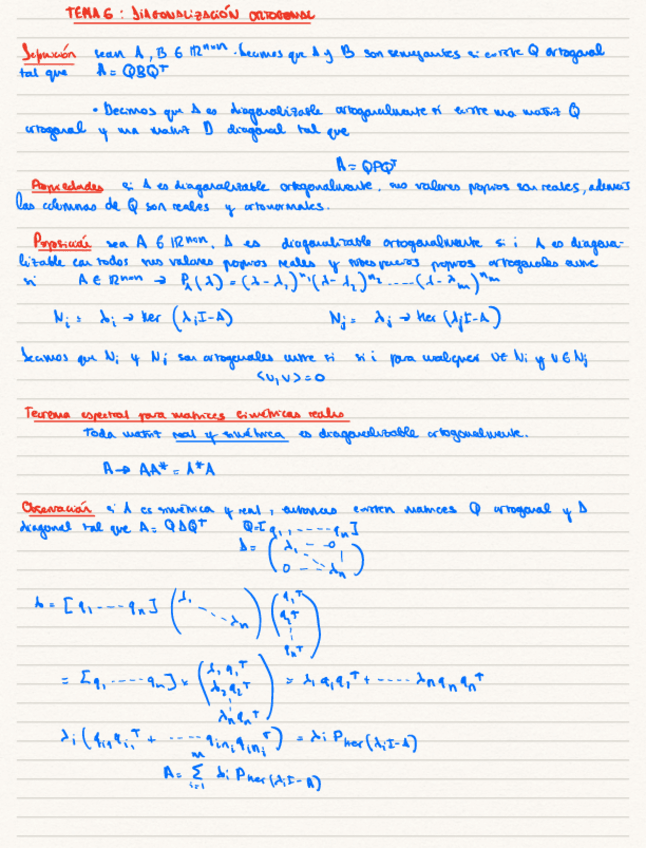 TEMA 6: DIAGONALIZACIÓN ORTOGONAL
Definición sean A, B ∈ ℝⁿˣⁿ. Decimos que A y B son semejantes si existe Q ortogonal
tal que A = QBQᵀ
• Decimos que A es diagonalizable ortogonalmente si existe una matriz Q
ortogonal y una matriz D diagonal tal que
A = QDQᵀ
Propiedades si A es diagonalizable ortogonalmente, sus valores propios son reales, además
las columnas de Q son reales y ortonormales.
Proposición sea A ∈ ℝⁿˣⁿ, A es diagonalizable ortogonalmente si A es diagona-
lizable con todos sus valores propios reales y subespacios propios ortogonales entre
si A ∈ ℝⁿˣⁿ → P_A(λ) = (λ - λ₁)^n₁ (λ - λ₂)^n₂ ..... (λ - λ_m)^n_m
N_i = λ_i → ker (λ_i I - A) N_j = λ_j → ker (λ_j I - A)
Decimos que N_i y N_j son ortogonales entre si si para cualquier u ∈ N_i y v ∈ N_j
<u, v> = 0
Teorema espectral para matrices simétricas reales
Toda matriz real y simétrica es diagonalizable ortogonalmente.
A → AA* = A*A
Observación si A es simétrica y real, entonces existen matrices Q ortogonal y Δ
diagonal tal que A = QΔQᵀ Q = [q₁, ..... q_n]
Δ = (λ₁ -- 0
0 --- λ_n)
A = [q₁ .... q_n] (λ₁ ... λ_n) (q₁ᵀ q₂ᵀ ⋮ q_nᵀ)
= [q₁ ..... q_n] × (λ₁q₁ᵀ λ₂q₂ᵀ ⋮ λ_n q_nᵀ) = λ₁q₁q₁ᵀ + ..... λ_n q_n q_nᵀ
λ_i (q_i₁ q_i₁ᵀ + ..... q_in_i q_in_iᵀ) = λ_i P_ker(λ_i I - A)
A = Σ_{i=1}^{m} λ_i P_ker(λ_i I - A)